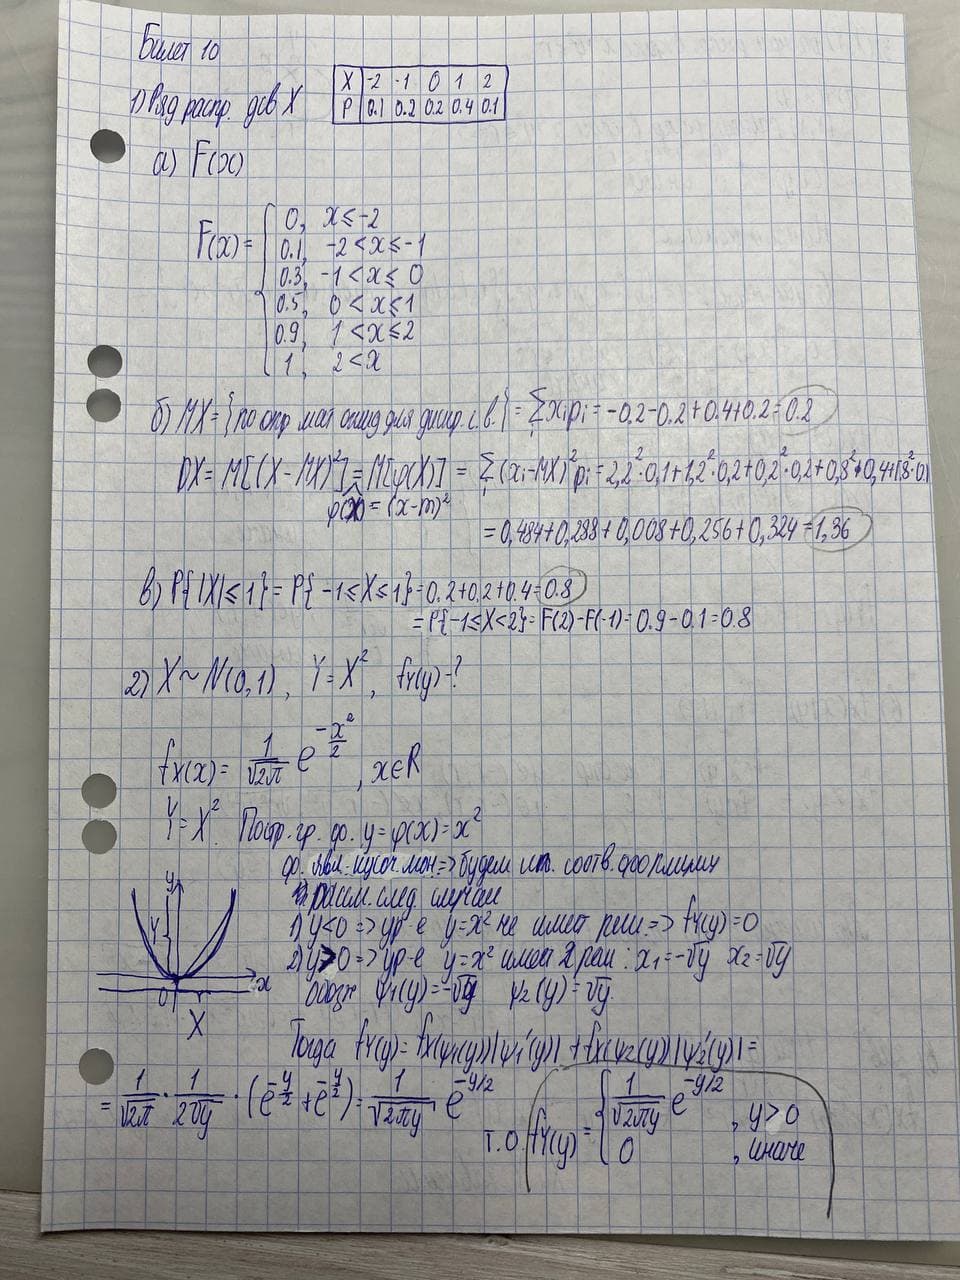 Билет 10
1) Ряд распр. дсв X
X -2 -1 0 1 2
P 0.1 0.2 0.2 0.4 0.1
а) F(x)
F(x) = { 0, x ≤ -2
0.1, -2 < x ≤ -1
0.3, -1 < x ≤ 0
0.5, 0 < x ≤ 1
0.9, 1 < x ≤ 2
1, 2 < x
б) MX = {по опр мат ожид для дискр. с.в.} = ∑ xᵢpᵢ = -0.2-0.2+0.4+0.2 = 0.2
DX = M[(X-MX)²] = M[φ(X)] = ∑ (xᵢ-MX)² pᵢ = 2,2²·0,1+1,2²·0,2+0,2²·0,2+0,8²·0,4+1,8²·0.1
φ(x) = (x-m)²
= 0,484+0,288+0,008+0,256+0,324 = 1,36
в) P{|X| ≤ 1} = P{-1 ≤ X ≤ 1} = 0.2+0.2+0.4 = 0.8
= P{-1 ≤ X < 2} = F(2)-F(-1) = 0.9-0.1 = 0.8
2) X ~ N(0,1), Y = X², fY(y)-?
fX(x) = 1/√2π e^(-x²/2), x ∈ R
Y = X². Постр. гр. ф. y = φ(x) = x²
ф. явл. кусоч. мон => будем исп. соотв. формулы
рассм. след. случаи
1) y<0 => ур-е y=x² не имеет реш => fY(y)=0
2) y>0 => ур-е y=x² имеет 2 реш: x₁=-√y x₂=√y
обозн ψ₁(y)=-√y ψ₂(y)=√y
y
Y
0
x
X
Тогда fY(y) = fX(ψ₁(y))|ψ₁'(y)| + fX(ψ₂(y))|ψ₂'(y)| =
= 1/√2π · 1/2√y · (e^(-y/2) + e^(-y/2)) = 1/√2πy e^(-y/2)
Т.О. fY(y) = { 1/√2πy e^(-y/2), y>0
0, иначе